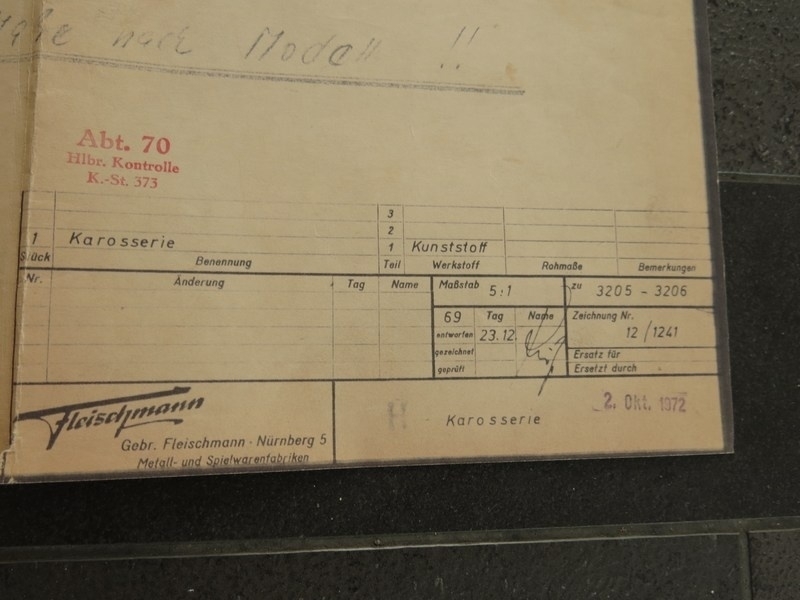 nach Modell !!
Abt. 70
Hlbr. Kontrolle
K.-St. 373
3
2
1 Karosserie 1 Kunststoff
Stück Benennung Teil Werkstoff Rohmaße Bemerkungen
Nr. Änderung Tag Name Maßstab 5:1 zu 3205 - 3206
69 Tag Name Zeichnung Nr.
entworfen 23.12. 12/1241
gezeichnet Ersatz für
geprüft Ersetzt durch
Fleischmann
Gebr. Fleischmann · Nürnberg 5
Metall- und Spielwarenfabriken
H Karosserie 2. Okt. 1972